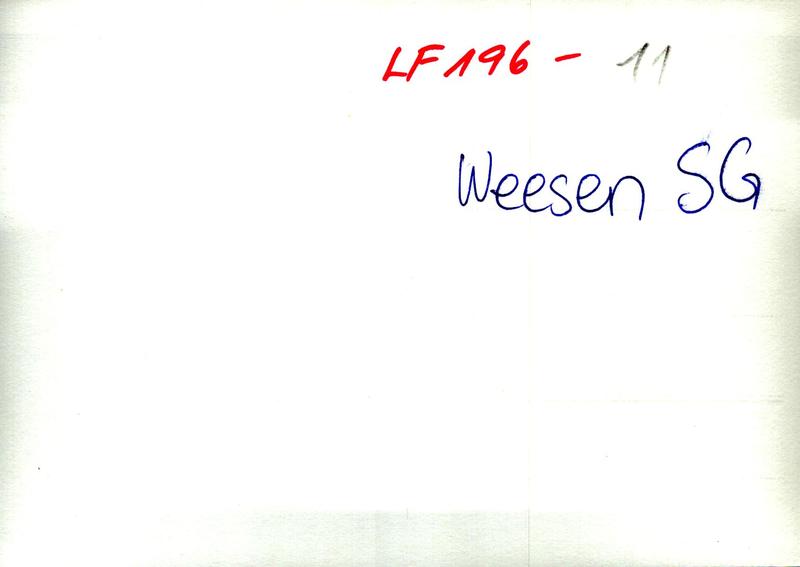 LF 196 - 11
Weesen SG